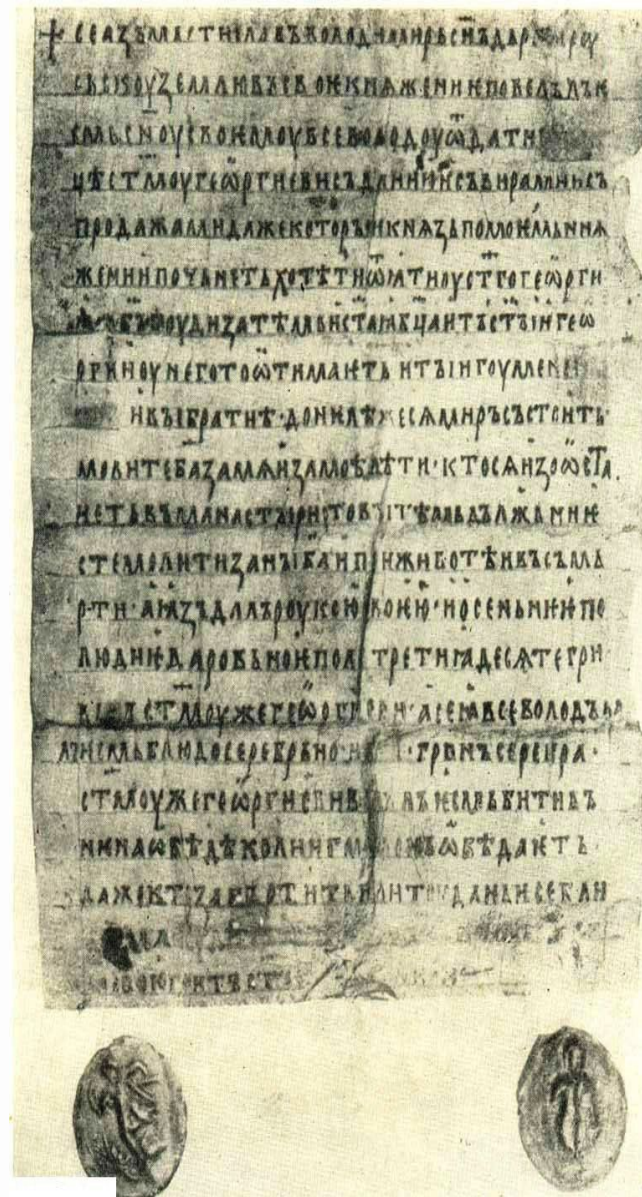 + се азъ мьстиславъ володимирь сн҃ъ дьржа роу
сьскоу землю въ свое княжение повелѣлъ ѥ
смь сн҃оу своѥмоу всеволодоу ѿдати
цѣ ст҃моу георгиеви съ данию и съ вирами и съ
продажами даже которыи князь по моѥмь кня
жении почьнеть хотѣти ѿяти оу ст҃го георги
ꙗ а бъ҃ боуди за тѣмь и ст҃аꙗ бц҃а и тъ ст҃ыи гео
ргии оу него то ѿимаѥть и ты игоумене
и вы братиѣ донелѣже ся миръ състоить
молите ба҃ за мя и за моѣ дѣти кто ся изоѡста
неть въ манастыри то вы тѣмь дължьни ѥ
сте молити за ны ба҃ и при животѣ и въ съмь
рти а ꙗзъ далъ роукою своѥю и осеньнѥѥ по
людиѥ даровьноѥ полътретиꙗдесяте гри
вьнъ ст҃моу же георгиеви а се ꙗ всеволодъ да
лъ ѥсмь блюдо серебрьно въ л҃ грвнъ серебра
ст҃моу же георгиеви велѣлъ ѥсмь бити въ
нѥ на обѣдѣ коли игоуменъ обѣдаѥть
даже кто запъртить или тоу дань и се блю